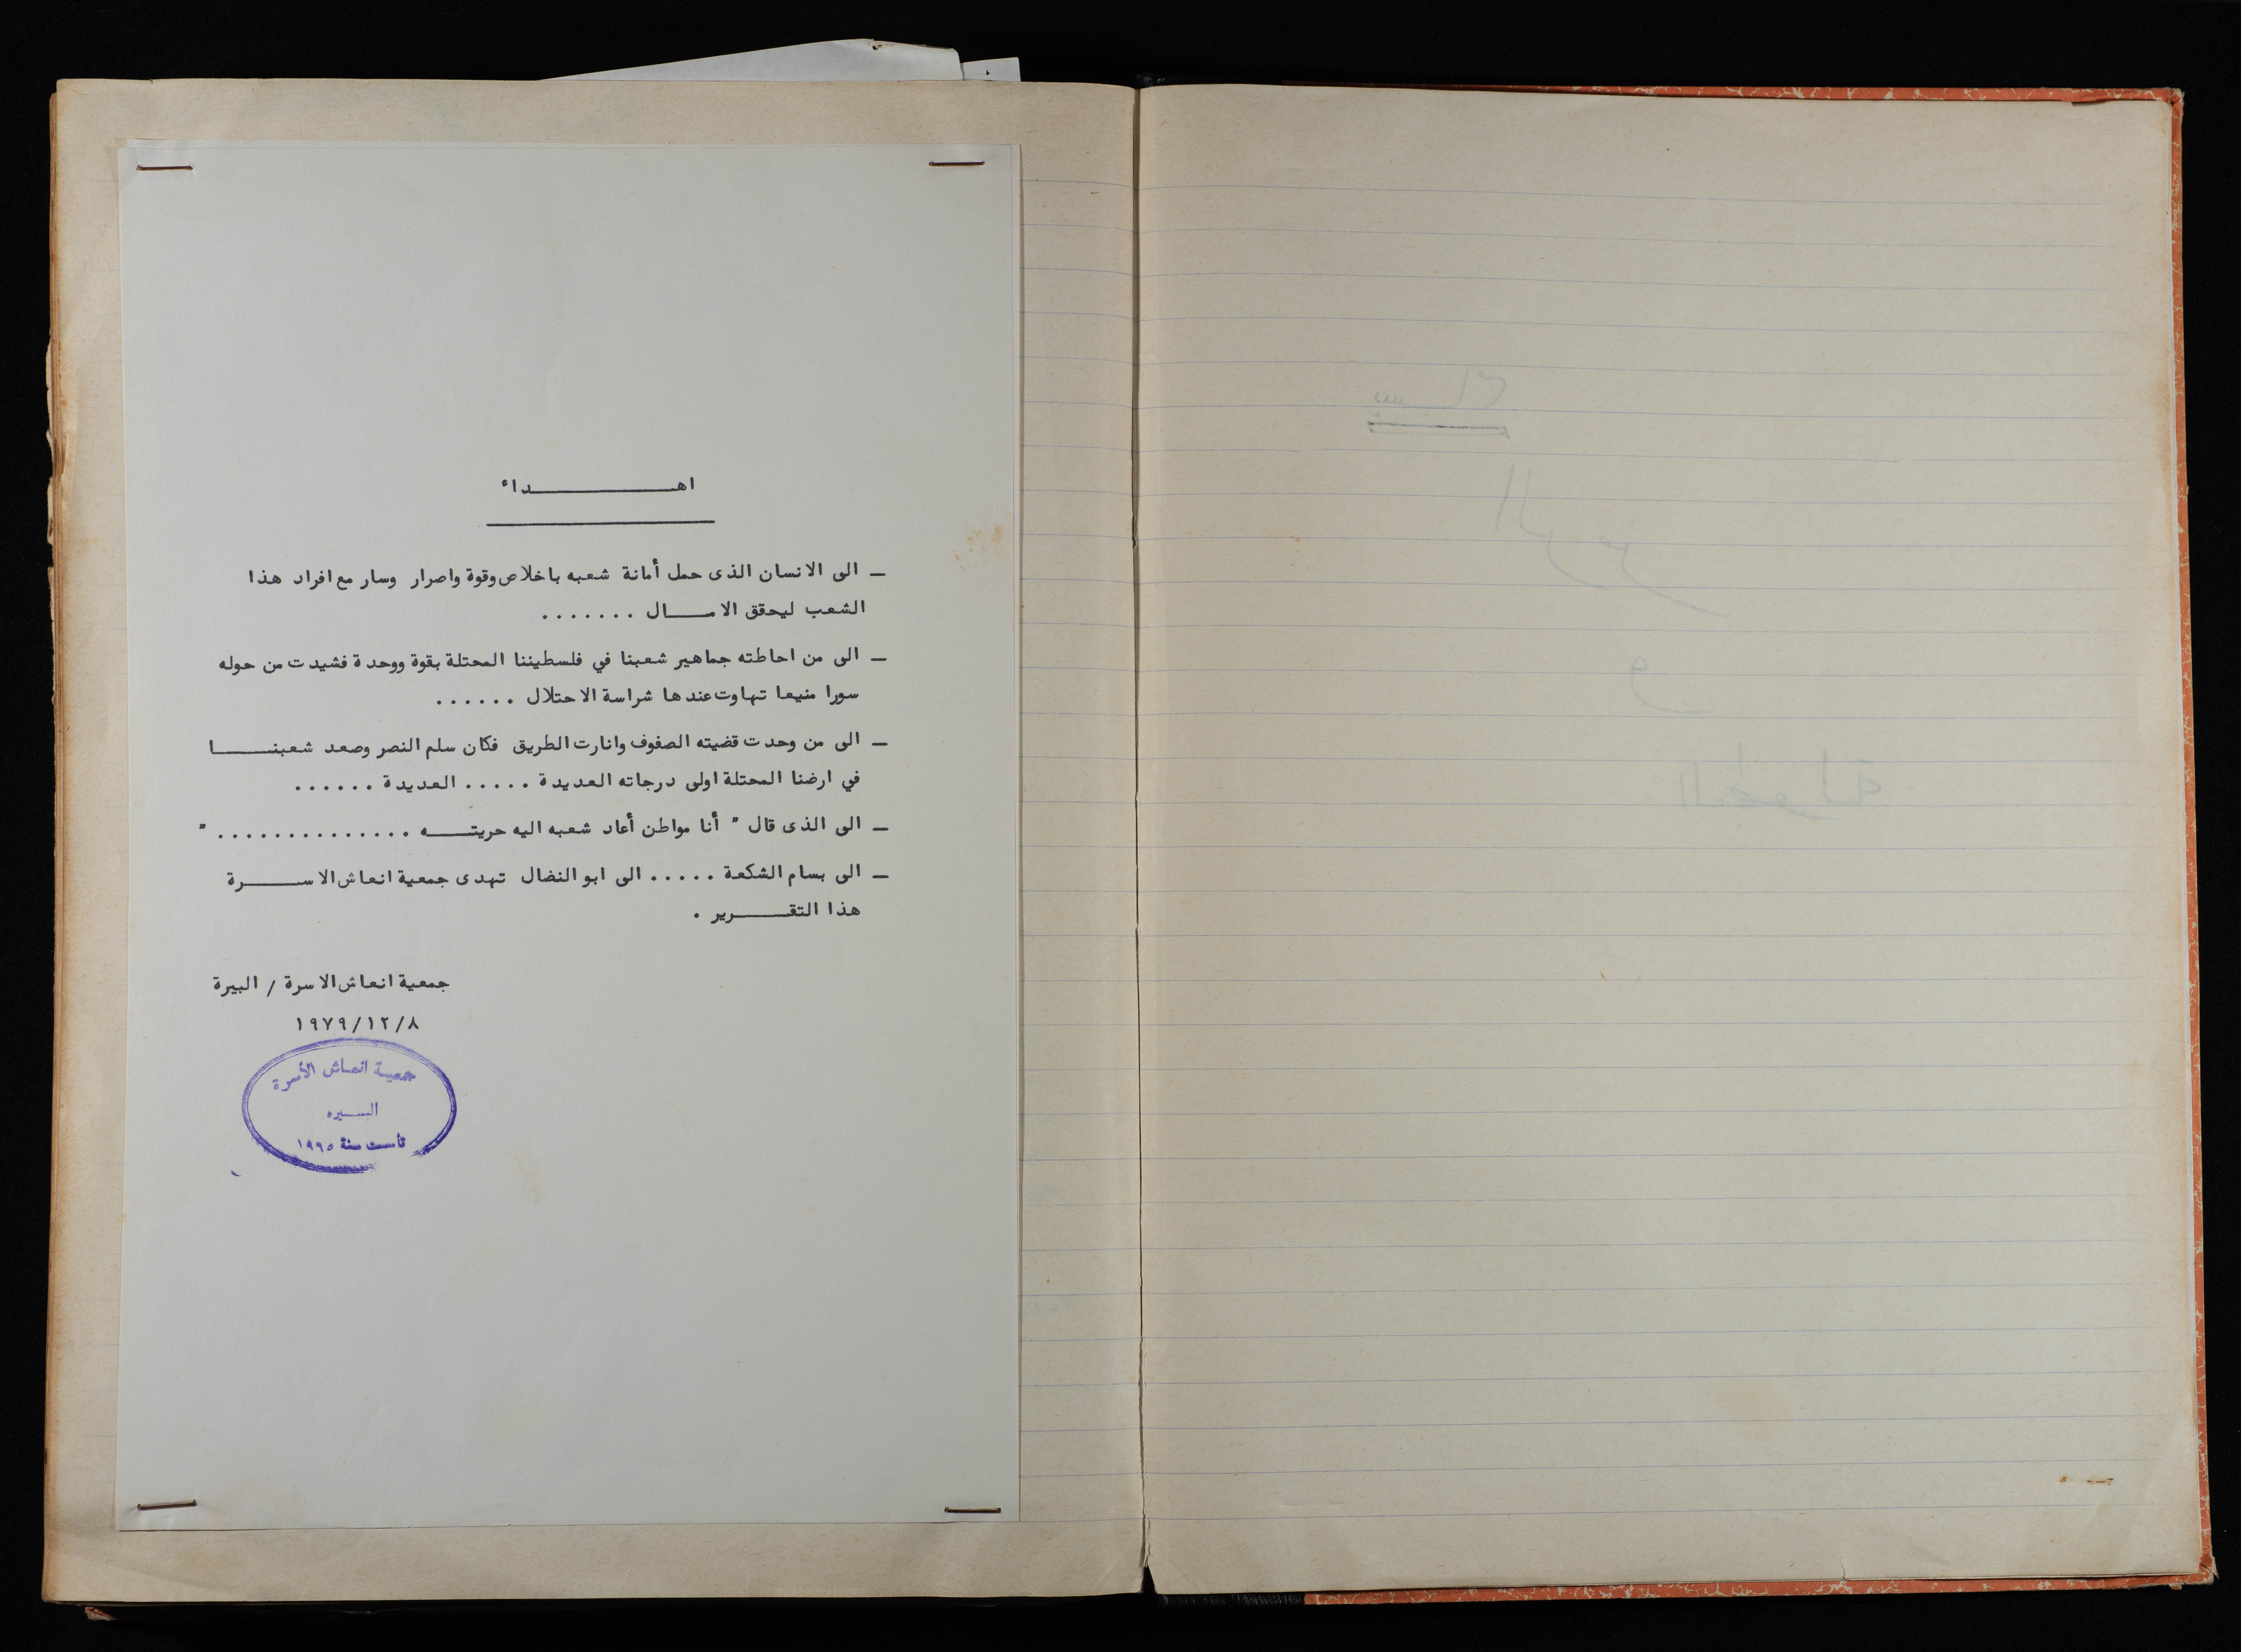 اهـــــــــداء
ـ الى الانسان الذى حمل أمانة شعبه باخلاص وقوة واصرار وسار مع افراد هذا
الشعب ليحقق الامـــال . . . . . . .
ـ الى من احاطته جماهير شعبنا في فلسطيننا المحتلة بقوة ووحدة فشيدت من حوله
سورا منيعا تهاوت عندها شراسة الاحتلال . . . . . .
ـ الى من وحدت قضيته الصفوف وانارت الطريق فكان سلم النصر وصعد شعبنـــا
في ارضنا المحتلة اولى درجاته العديدة . . . . . العديدة . . . . . .
ـ الى الذى قال " أنا مواطن أعاد شعبه اليه حريتـــه . . . . . . . . . . . . . . "
ـ الى بسام الشكعة . . . . . الى ابو النضال تهدى جمعية انعاش الاســـرة
هذا التقـــرير .
جمعية انعاش الاسرة / البيرة
١٩٧٩/١٢/٨
جمعية انعاش الأسرة
البـــيره
تأسست سنة ١٩٦٥